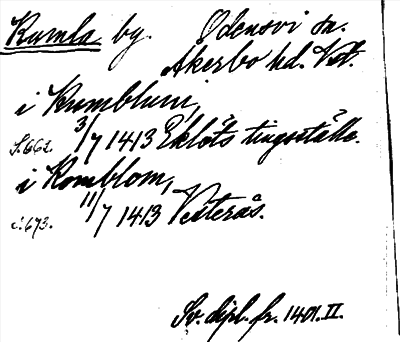 Rumla by. Odensvi sn.
Åkerbo hd. Vstm.
i Rumblum,
S. 662. 3/7 1413 Eklöts tingställe.
i Romblom,
c:673. 11/7 1413 Vesterås.
Sv. dipl. fr. 1401. II.